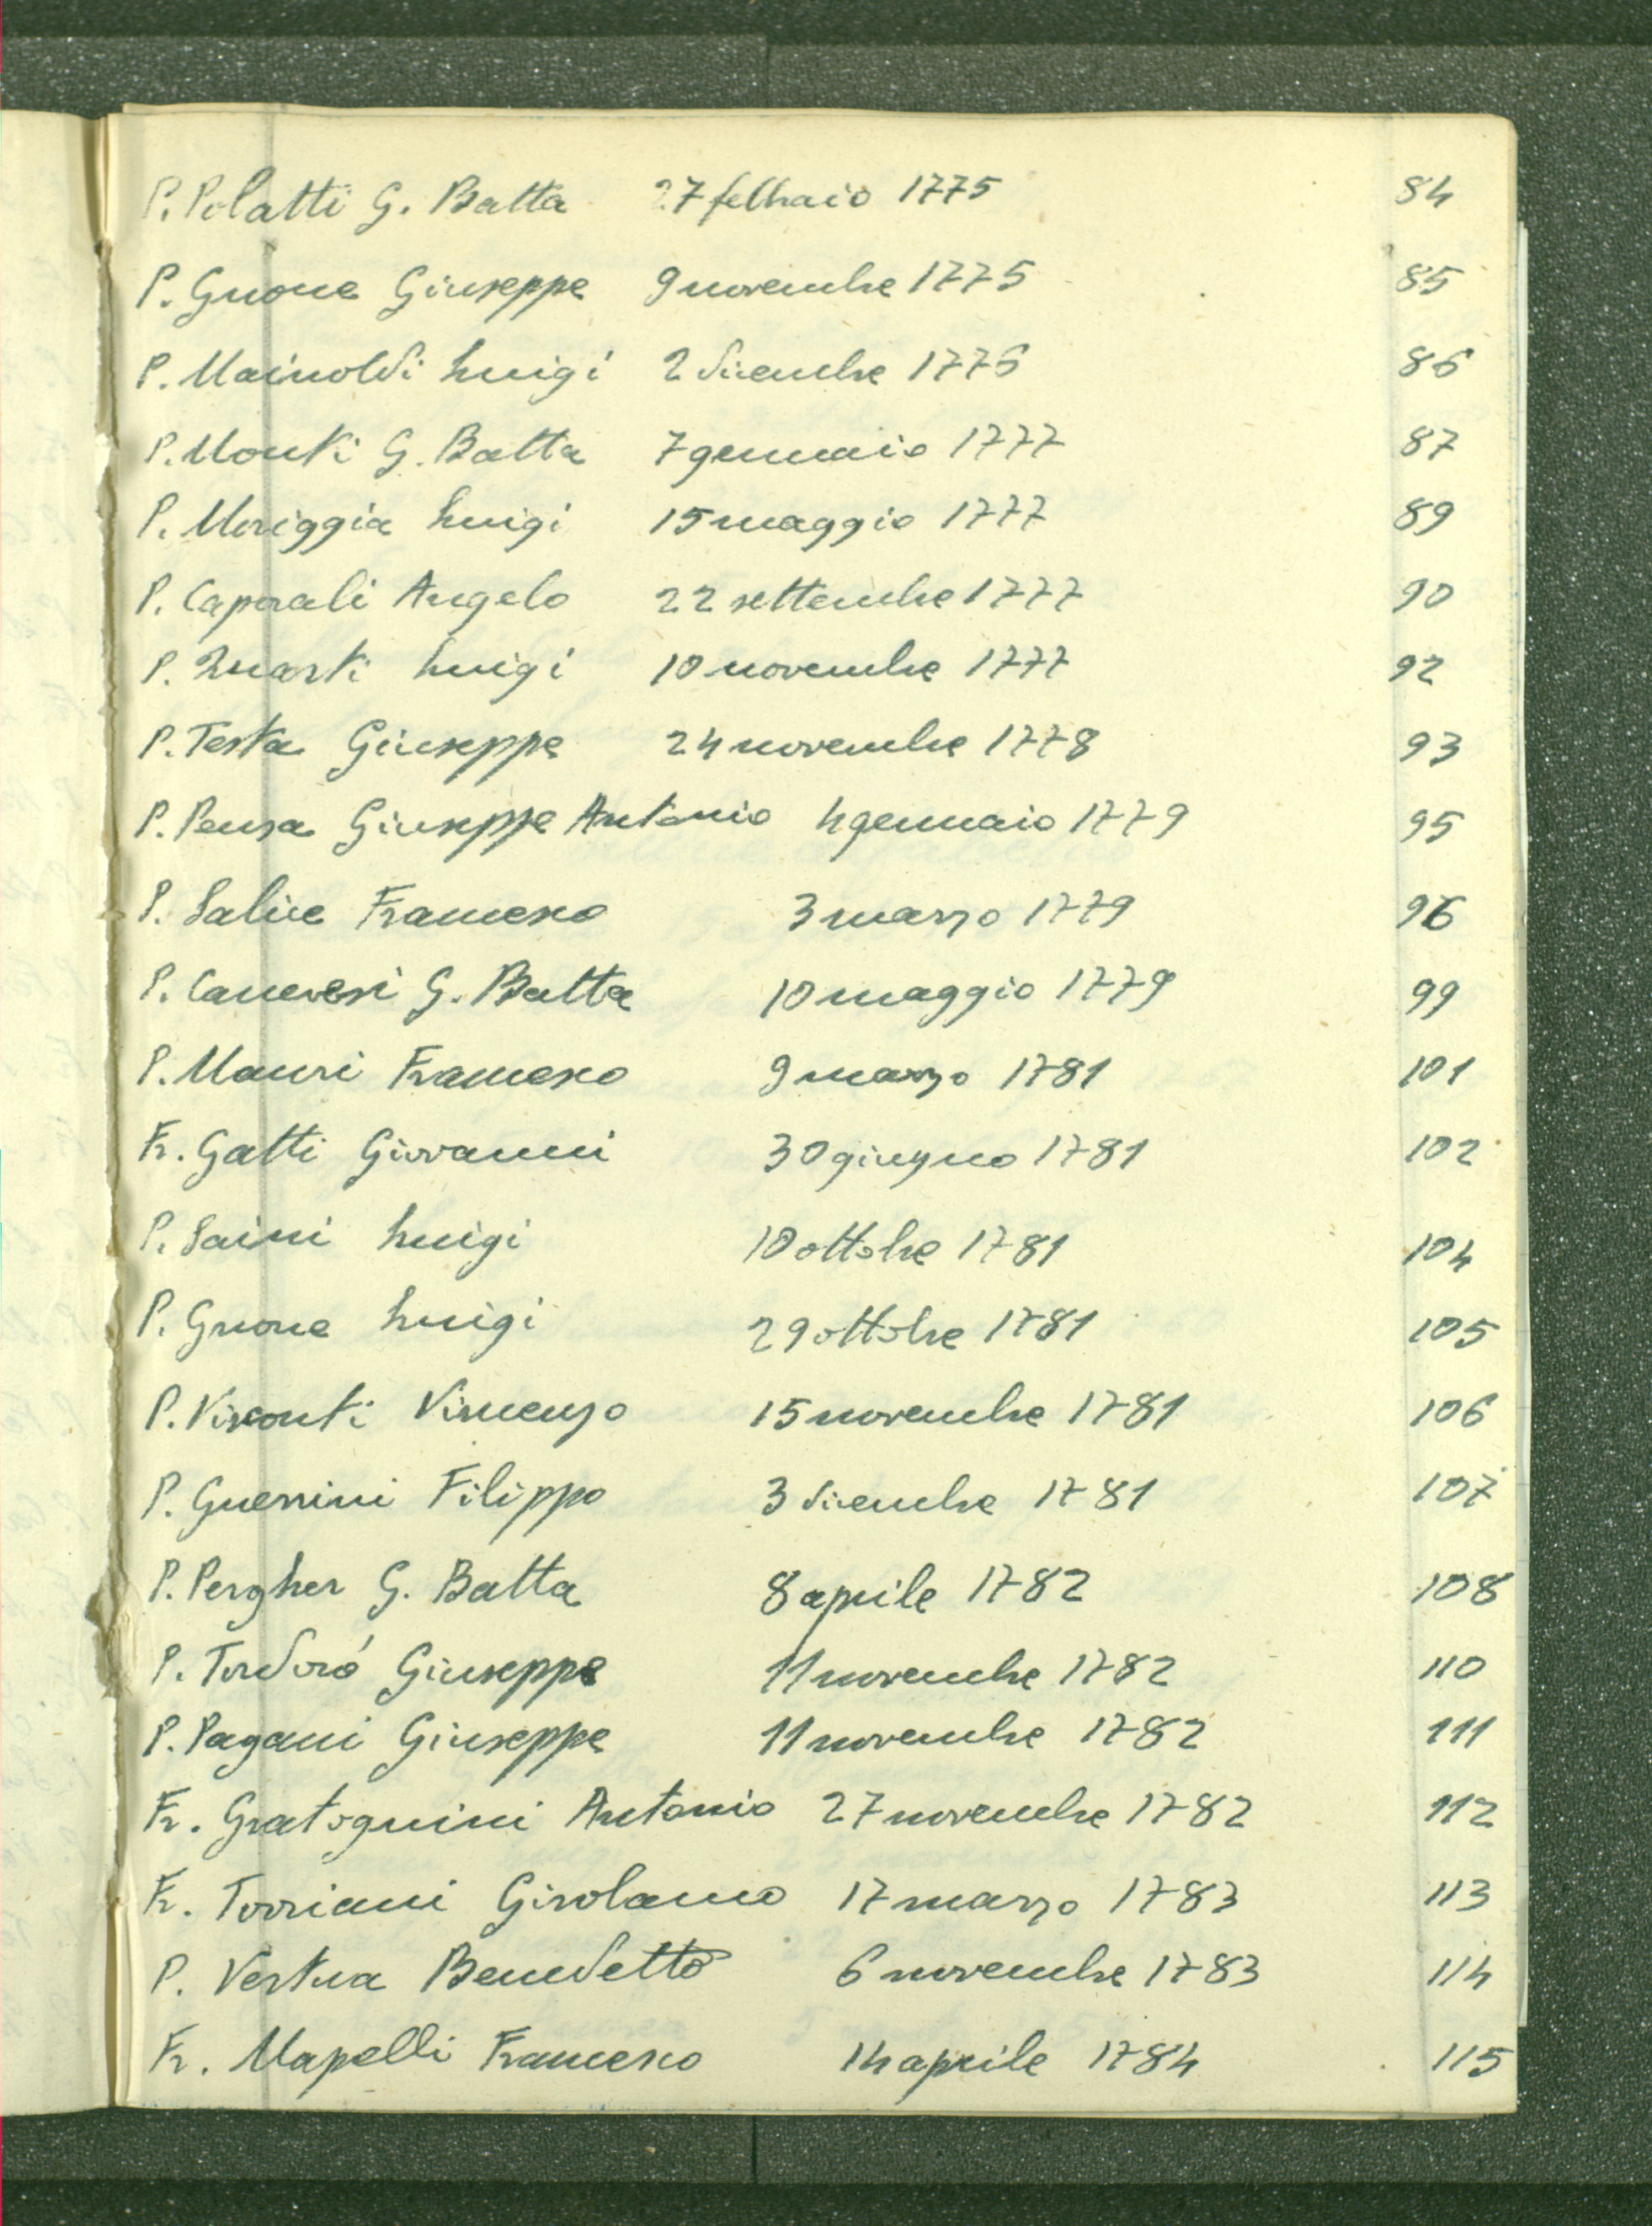 P. Polatti G. Batta 27 febbraio 1775 84
P. Gnone Giuseppe 9 novembre 1775 85
P. Mainoldi Luigi 2 dicembre 1776 86
P. Monti G. Batta 7 gennaio 1777 87
P. Moriggia Luigi 15 maggio 1777 89
P. Caporali Angelo 22 settembre 1777 90
P. Quarti Luigi 10 novembre 1777 92
P. Testa Giuseppe 24 novembre 1778 93
P. Pensa Giuseppe Antonio 4 gennaio 1779 95
P. Salice Francesco 3 marzo 1779 96
P. Canevesi G. Batta 10 maggio 1779 99
P. Mauri Francesco 9 marzo 1781 101
Fr. Gatti Giovanni 30 giugno 1781 102
P. Saini Luigi 10 ottobre 1781 104
P. Gnone Luigi 29 ottobre 1781 105
P. Visconti Vincenzo 15 novembre 1781 106
P. Guerrini Filippo 3 dicembre 1781 107
P. Pergher G. Batta 8 aprile 1782 108
P. Tordoró Giuseppe 11 novembre 1782 110
P. Pagani Giuseppe 11 novembre 1782 111
Fr. Gratognini Antonio 27 novembre 1782 112
Fr. Torriani Girolamo 17 marzo 1783 113
P. Vertua Benedetto 6 novembre 1783 114
Fr. Mapelli Francesco 14 aprile 1784 115